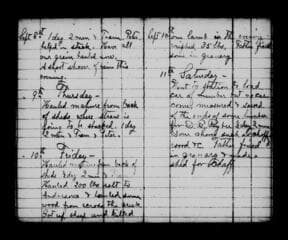 Sept 8th 1 day 2 men & Team Pete
helps in stack. Have all
our grain hauled now.
A short shower of rain this
evening.
9th Thursday -
Hauled manure from back
of sheds where straw is
going to be stacked. 1 day
2 men & Team & Pete.
10th Friday -
Hauled manure from back of
sheds 1 day 2 men & Team
Hauled 200 lbs salt to
and hauled some
wood from across the creek.
Got up sheep and killed
Sept 10th one lamb in the evening
weighed 35 lbs. Father fixed
door in granary
11th Saturday -
Went to station to load
car of lumber but no car
come, measured & sawed
off the ends of some lumber
for 1 day 2 men
Some about
wood & C. Father fixed
in granary & made
shed for